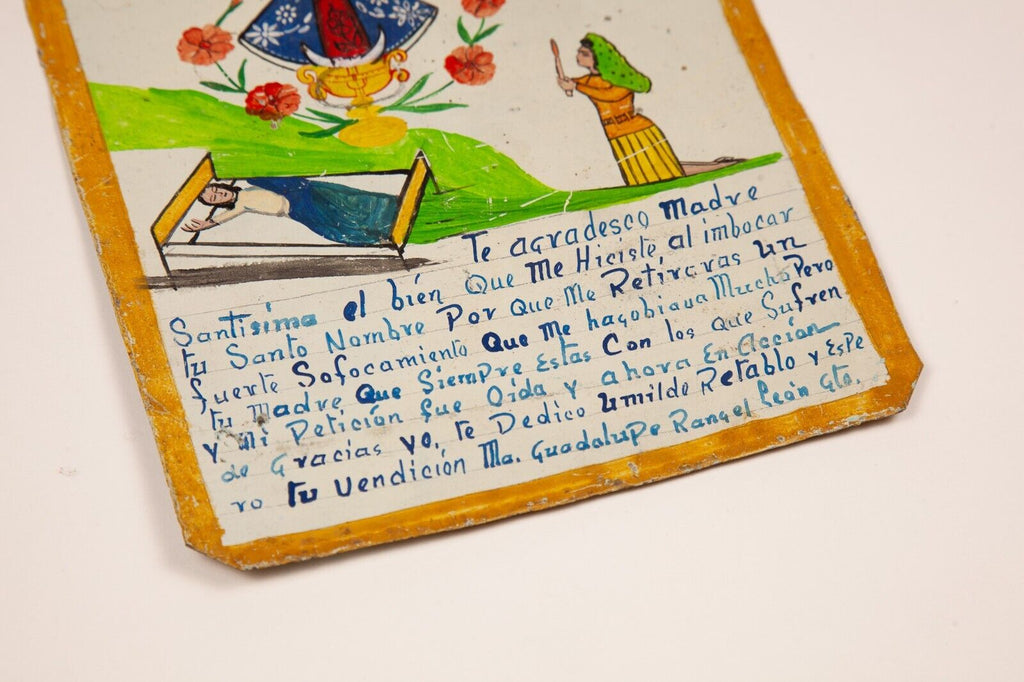 Te agradesco Madre
Santisima el bién Que Me Hiciste, al imbocar
tu Santo Nombre Por Que Me Retiraras un
fuerte Sofocamiento Que Me hagobiava Mucho Pero
tu Madre Que Siempre Estas Con los que Sufren
y Mi Petición fue Oida y ahora En Acción
de Gracias yo, te Dedico umilde Retablo y Espe
ro tu Vendición Ma. Guadalupe Rangel León Gto.